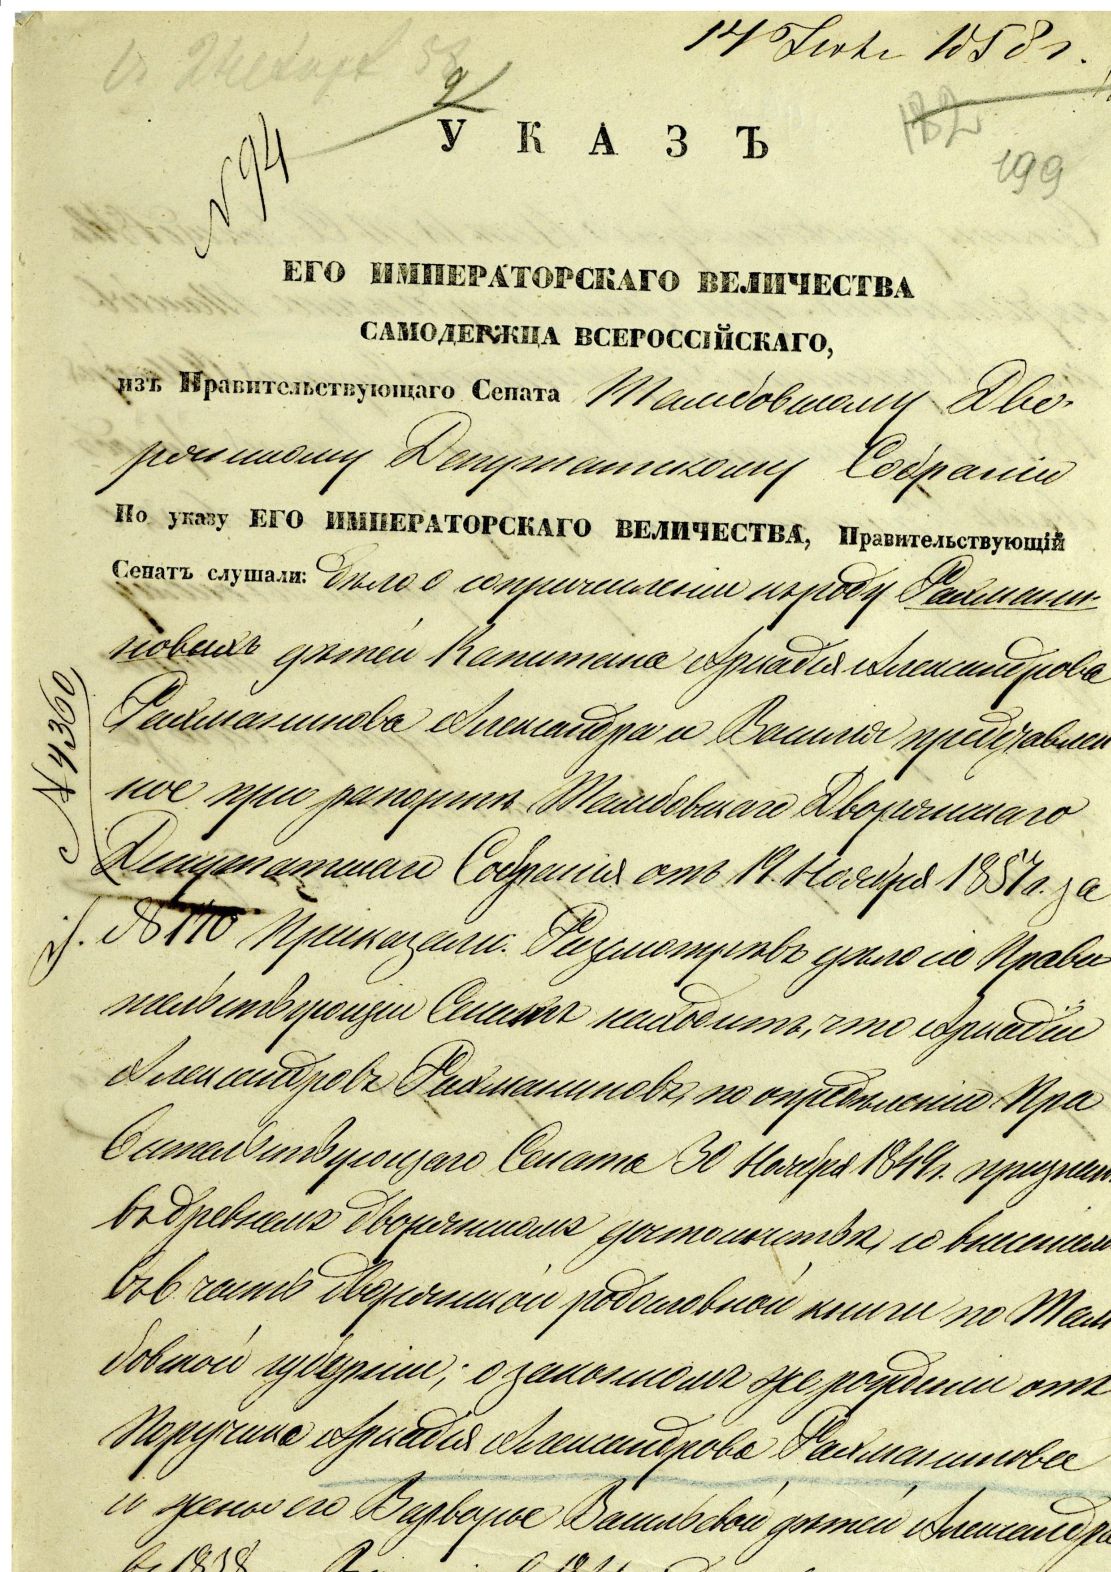 14 1858 г.
182
199
№ 94
УКАЗЪ
ЕГО ИМПЕРАТОРСКАГО ВЕЛИЧЕСТВА
САМОДЕРЖЦА ВСЕРОССІЙСКАГО,
изъ Правительствующаго Сената Тамбовскому Дво-
рянскому Депутатскому Собранію
По указу ЕГО ИМПЕРАТОРСКАГО ВЕЛИЧЕСТВА, Правительствующій
Сенатъ слушали: дѣло о сопричисленіи къ роду Рахмани-
новыхъ дѣтей Капитана Аркадія Александрова
Рахманинова Александра и Василія представлен
ное при рапортѣ Тамбовскаго Дворянскаго
№ 4360
Депутатскаго Собранія отъ 19 Ноября 1857 г. за
№ 170 Приказали: Разсмотрѣвъ дѣло сіе Прави
тельствующій Сенатъ находитъ, что Аркадій
Александровъ Рахманиновъ, по опредѣленію Пра
вительствующаго Сената 30 Ноября 1849 г. признан
въ древнемъ дворянскомъ достоинствѣ, со внесеніем
въ 6 часть дворянской родословной книги по Там
бовской губерніи; о законномъ же рожденіи отъ
Поручика Аркадія Александрова Рахманинова
и жены его Варвары Васильевой дѣтей Александра